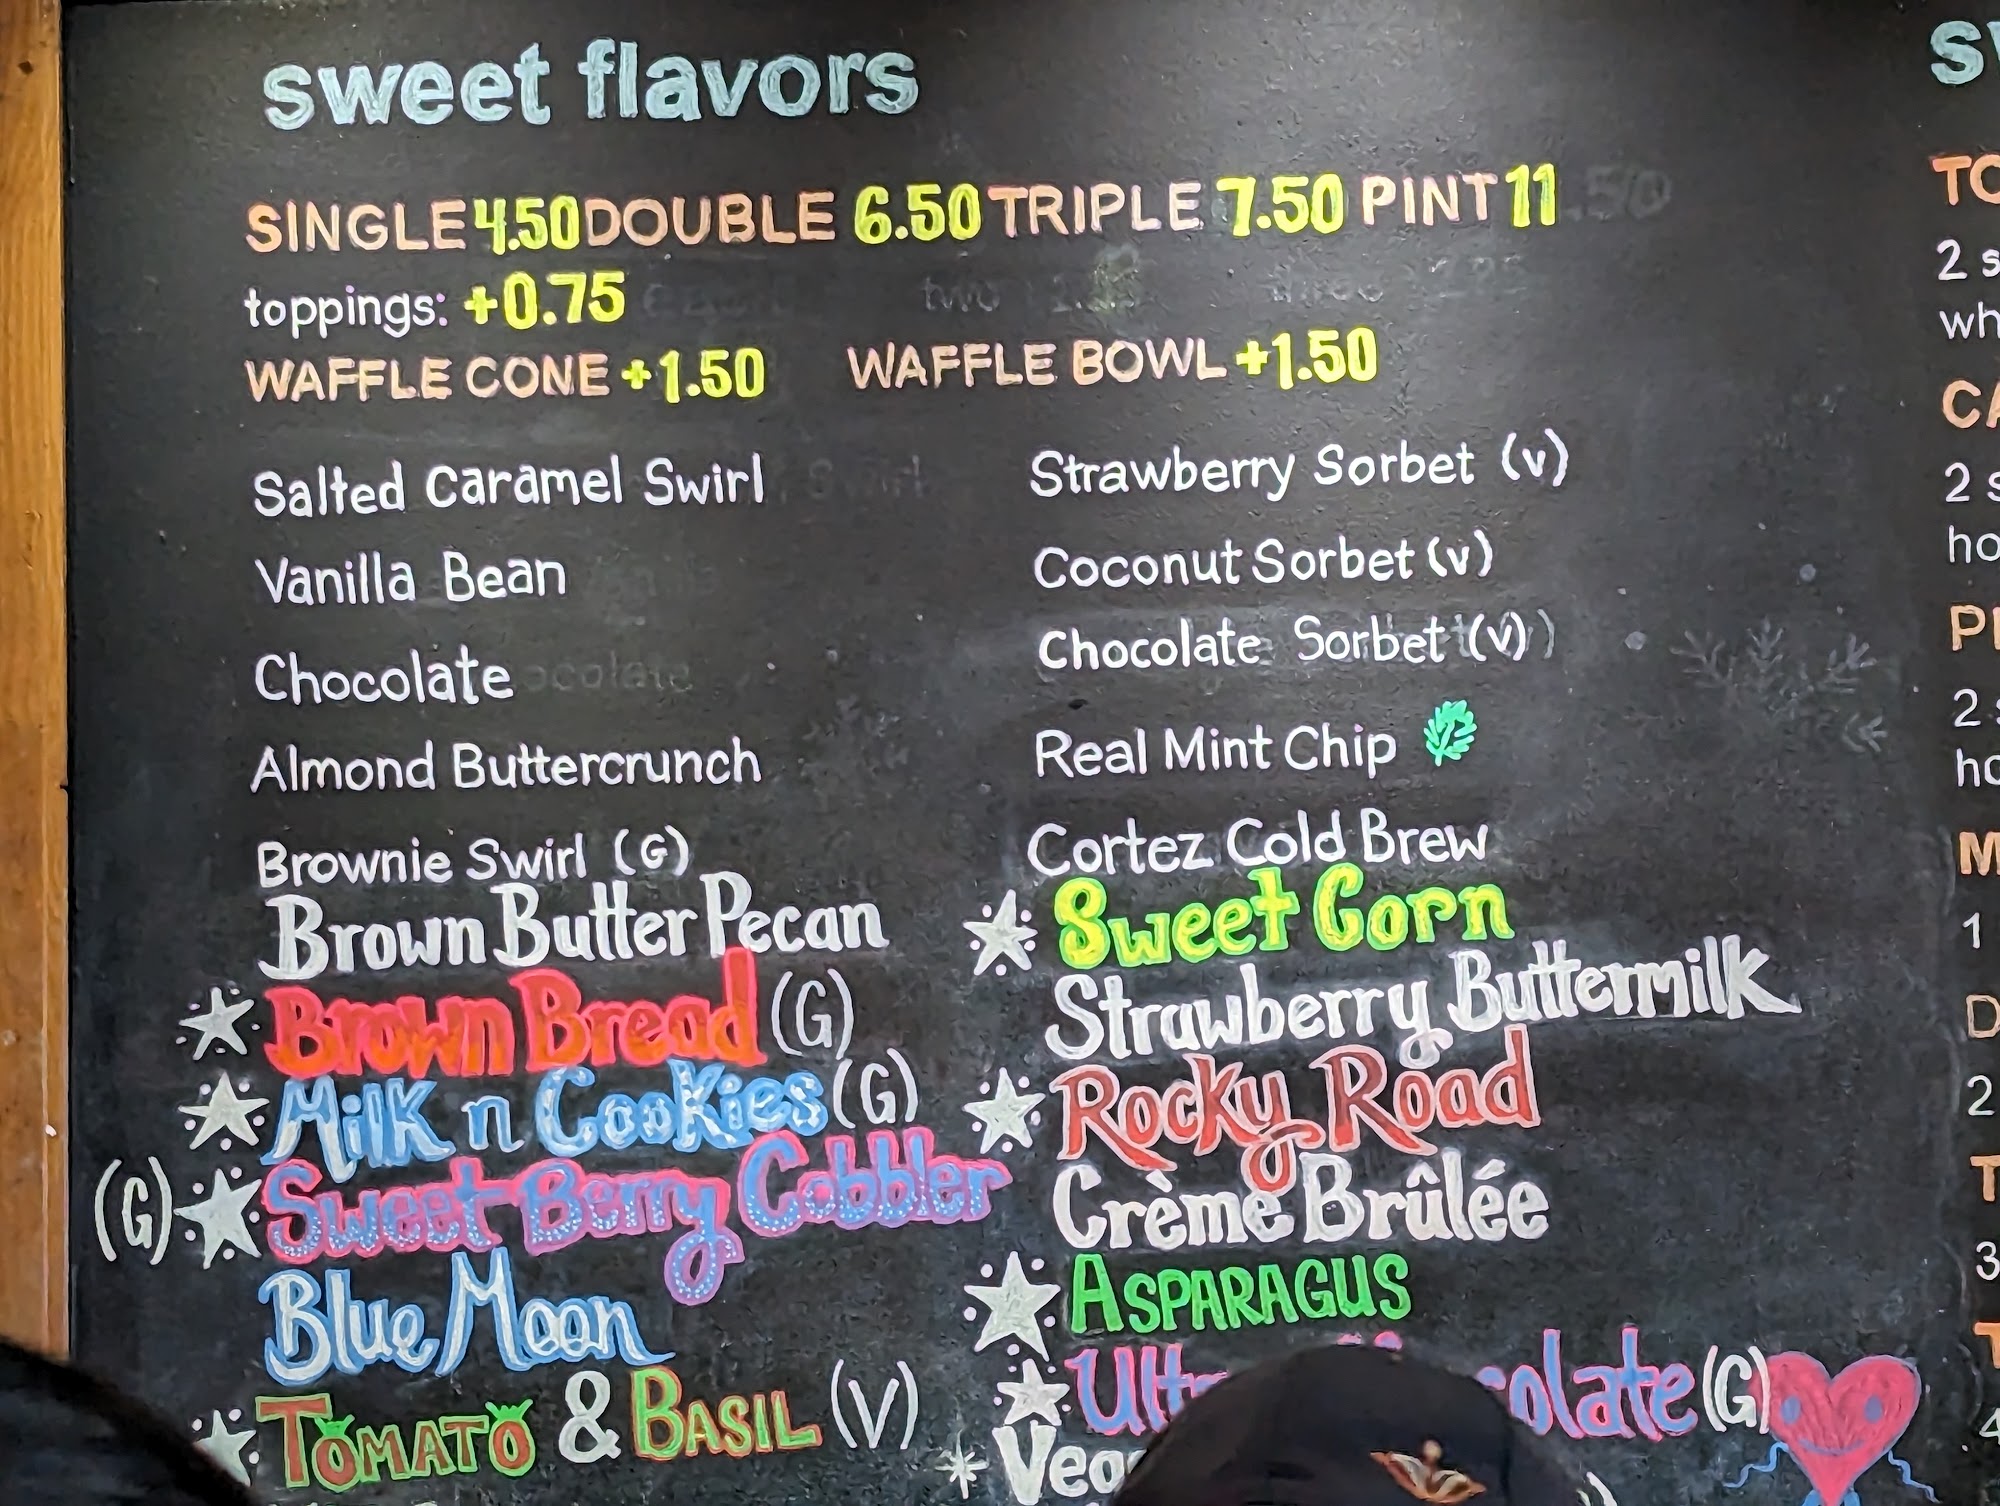 sweet flavors
SINGLE 4.50 DOUBLE 6.50 TRIPLE 7.50 PINT 11
toppings: +0.75
WAFFLE CONE +1.50 WAFFLE BOWL +1.50
Salted Caramel Swirl
Vanilla Bean
Chocolate
Almond Buttercrunch
Brownie Swirl (G)
Brown Butter Pecan
Brown Bread (G)
Milk n Cookies (G)
(G) Sweet Berry Cobbler
Blue Moon
TOMATO & BASIL (V)
Strawberry Sorbet (v)
Coconut Sorbet (v)
Chocolate Sorbet (v)
Real Mint Chip
Cortez Cold Brew
Sweet Corn
Strawberry Buttermilk
Rocky Road
Crème Brûlée
ASPARAGUS
(G)
2
2
2
1
2
3